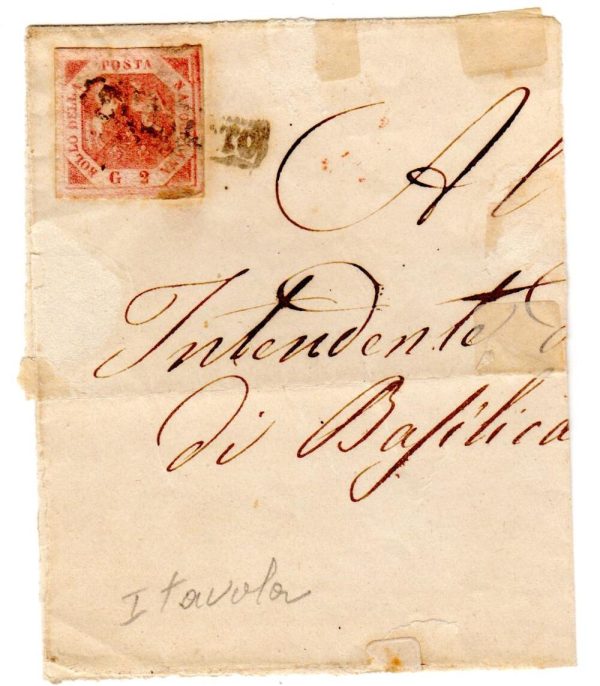 BOLLO DELLA POSTA NAPOLETANA
G 2
TO
Al
Intendente
di Basilica
I tavola